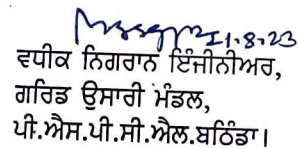 11.8.23
ਵਧੀਕ ਨਿਗਰਾਨ ਇੰਜੀਨੀਅਰ,
ਗਰਿਡ ਉਸਾਰੀ ਮੰਡਲ,
ਪੀ.ਐਸ.ਪੀ.ਸੀ.ਐਲ.ਬਠਿੰਡਾ।